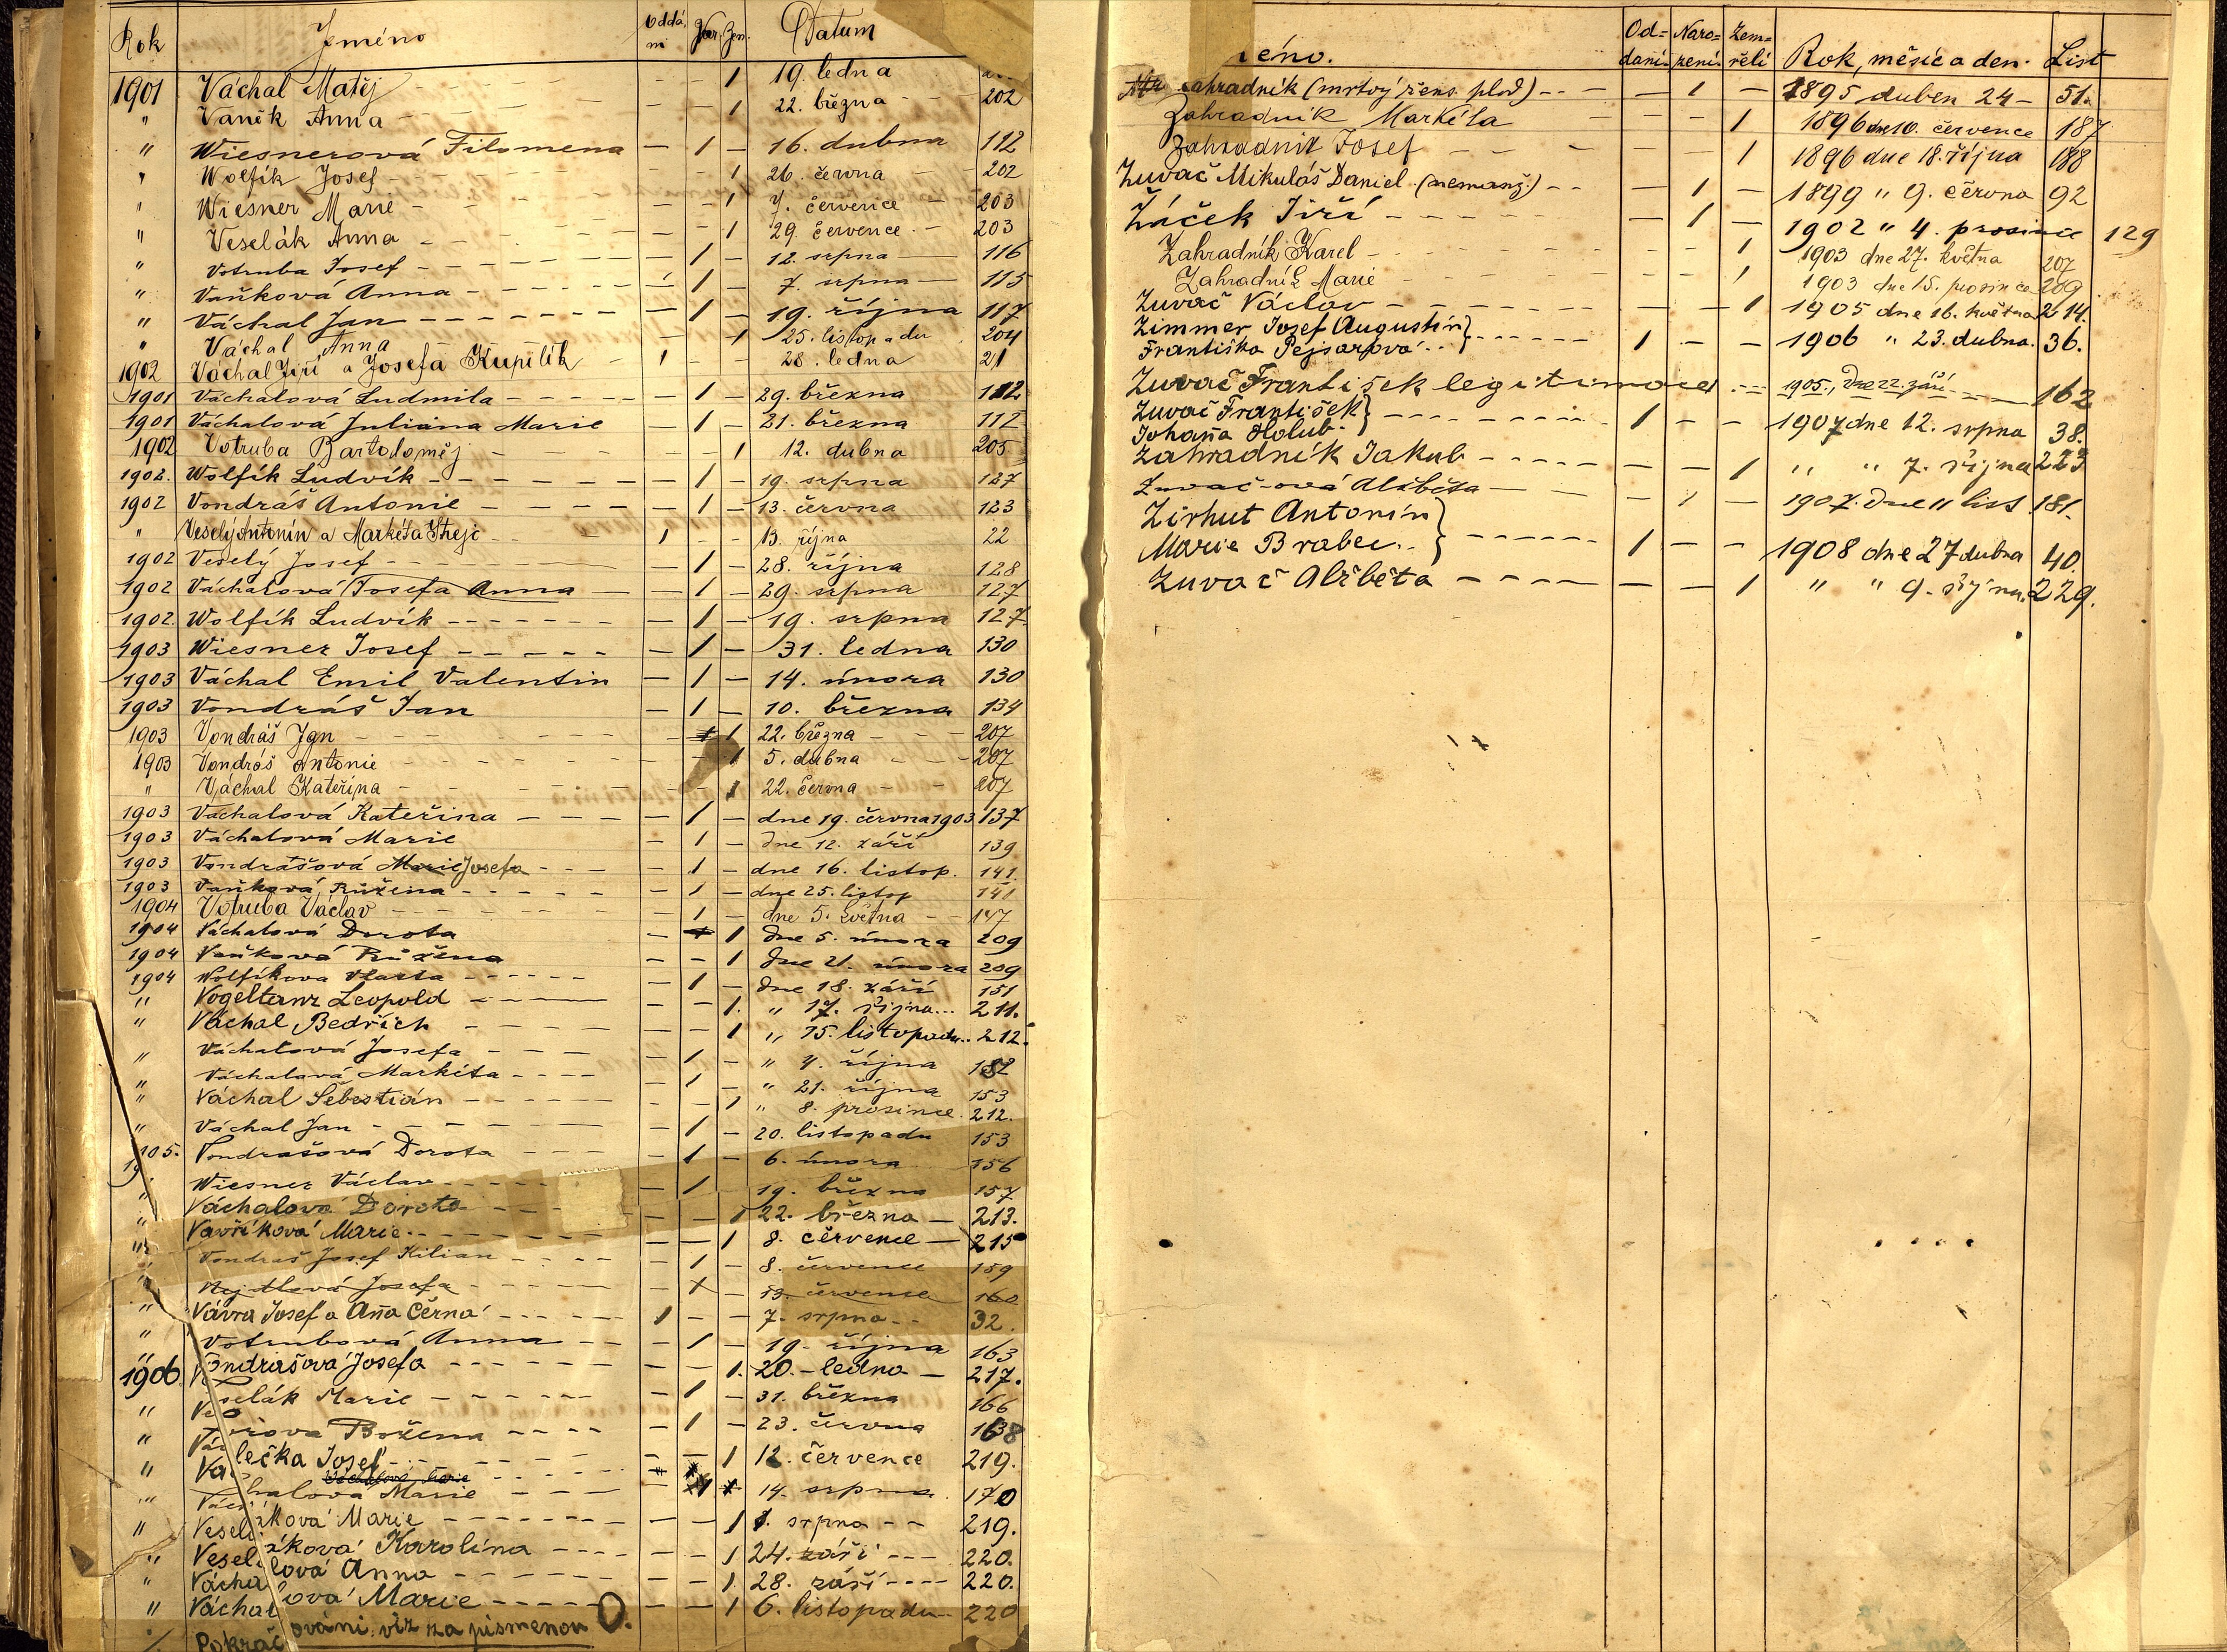 Rok Jméno Oddáni Nar. Zem. Datum
1901 Váchal Matěj - - 1 19. ledna
" Vaněk Anna - - 1 22. března - 202
" Wiesnerová Filomena - 1 - 16. dubna 112
" Wolfík Josef - - 1 26. června 202
" Wiesner Marie - - 1 7. července - 203
" Veselák Anna - - 1 29. července - 203
" Votruba Josef - 1 - 12. srpna - 116
" Vaňková Anna - 1 - 7. srpna - 115
" Váchal Jan - 1 - 19. října 117
" Váchal Anna 1 25. listopadu 204
1902 Váchal Jiří a Josefa Kupilík 1 - - 28. ledna 21
1901 Váchalová Ludmila - 1 - 29. března 112
1901 Váchalová Juliána Marie - 1 - 21. března 112
1902 Votruba Bartoloměj - - 1 12. dubna 205
1902. Wolfík Ludvík - 1 - 19. srpna 127
1902 Vondráš Antonie - 1 - 13. června 123
" Veselý Antonín a Markéta Strejc 1 - - 13. října 22
1902 Veselý Josef - 1 - 28. října 128
1902 Váchalová Josefa Anna - 1 - 29. srpna 127
1902. Wolfík Ludvík - 1 - 19. srpna 127
1903 Wiesner Josef - 1 - 31. ledna 130
1903 Váchal Emil Valentin - 1 - 14. února 130
1903 Vondráš Jan - 1 - 10. března 134
1903 Vondráš Jan 1 22. března - 207
1903 Vondráš Antonie 1 5. dubna - 207
" Váchal Kateřina - - 1 22. června - 207
1903 Váchalová Kateřina - 1 - dne 19. června 1903 137
1903 Váchalová Marie - 1 - dne 12. září 139
1903 Vondrášová Marie Josefa - 1 - dne 16. listop. 141.
1903 Vaňková Růžena - 1 - dne 25. listop 141
1904 Votruba Václav - 1 - dne 5. května - 147
1904 Váchalová Dorota - 1 dne 5. února 209
1904 Vaňková Růžena - - 1 dne 21. února 209
1904 Wolfíkova Vlasta - 1 - dne 18. září 151
" Vogeltanz Leopold - - 1. " 17. října... 211.
" Váchal Bedřich - - 1 " 15. listopadu.. 212.
" Váchalová Josefa - 1 - " 4. října 152
" Váchalová Markéta - 1 - " 21. října 153
" Váchal Šebestián - - 1 " 8. prosince. 212.
" Váchal Jan - 1 - 20. listopadu 153
1905. Vondrašová Dorota - 1 - 6. února 156
" Wiesner Václav - 1 19. března 157
" Váchalová Dorota - - 1 22. března - 213.
" Vavříková Marie - - 1 8. července - 215
" Vondraš Josef Kilian - 1 - 8. července 159
" Nejdlová Josefa - 1 - 13. července 160
" Vávra Josef a Aña Černá 1 - - 7. srpna - 32.
" Votrubová Anna - 1 - 19. října 163
1906. Vondrašová Josefa - - 1. 20. ledna - 217.
" Veselák Marie - 1 - 31. března 166
" Božena - 1 - 23. června 168
" lečka Josef - - 1 12. července 219.
" Váchalová Marie 14. srpna 170
" Veseláková Marie - - 1 srpna - - 219.
" Veseláková Karolina - - 1 24. září --- 220.
" Váchalová Anna - - 1 28. září ---- 220.
" Váchalová Marie - - 1 6. listopadu - 220
Pokračování viz za písmenou O.
éno. Oddaní- Narození- Zemřeli Rok, měsíc a den. List
Zahradník (mrtvý žens. plod) - - - 1 - 1895 duben 24 - 51.
Zahradník Markéta - - 1 1896 dne 10. července 187
Zahradník Josef - - 1 1896 dne 18. října 188
Zuvač Mikuláš Daniel (nemanž.) - - 1 - 1899 " 9. června 92
Žáček Jiří - 1 - 1902 " 4. prosince 129
Zahradník Karel - - 1 1903 dne 27. května 207
Zahradník Marie - - 1 1903 dne 15. prosince 209
Zuvač Václav - - 1 1905 dne 16. května 214.
Zimmer Josef Augustin
Františka Pejsarová 1 - - 1906 " 23. dubna. 36.
Zuvač František legitimace 1905., dne 22. září - 162
Zuvač František
Johaňa Holub. 1 - - 1907 dne 12. srpna 38.
Zahradník Jakub - - 1 " " 7. října 223
Zuvač-ová Alžběta - 1 - 1907. dne 11 list 181.
Zirhut Antonín
Marie Brabec. 1 - - 1908 dne 27 dubna 40.
Zuvač Alžběta - - 1 " " 9. října. 229.